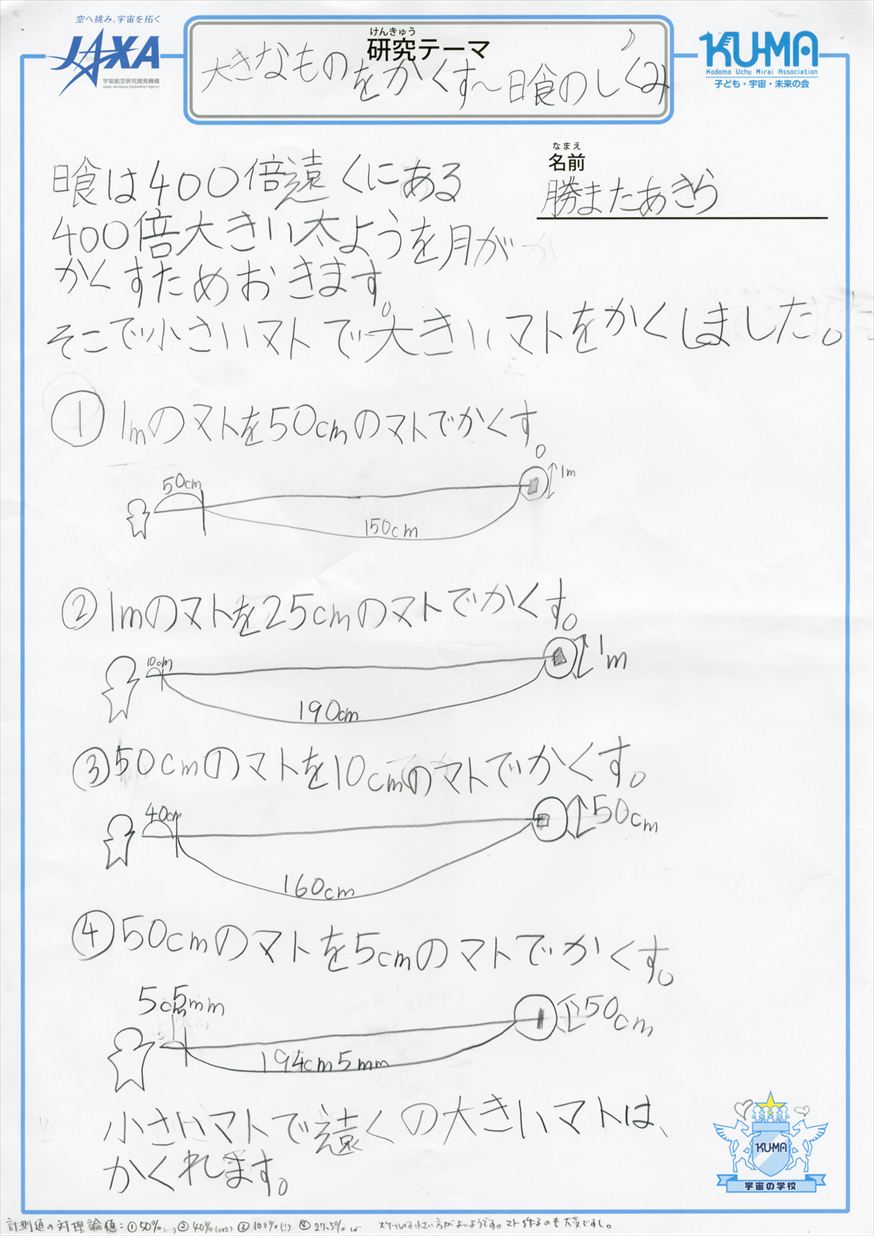 空へ挑み、宇宙を拓く
JAXA
宇宙航空研究開発機構
Japan Aerospace Exploration Agency
けんきゅう
研究テーマ
大きなものをかくす〜日食のしくみ
KU-MA
Kodomo Uchu Mirai Association
子ども・宇宙・未来の会
なまえ
名前
勝またあきら
日食は400倍遠くにある
400倍大きい太ようを月が
かくすためおきます。
そこで小さいマトで大きいマトをかくしました。
① 1mのマトを50cmのマトでかくす。
50cm
1m
150cm
② 1mのマトを25cmのマトでかくす。
10cm
1m
190cm
③ 50cmのマトを10cmのマトでかくす。
40cm
50cm
160cm
④ 50cmのマトを5cmのマトでかくす。
5cm5mm
50cm
194cm5mm
小さいマトで遠くの大きいマトは、
かくれます。
KU-MA
宇宙の学校
計測値の対理論値:①50% ②40% ③100% ④27.5%